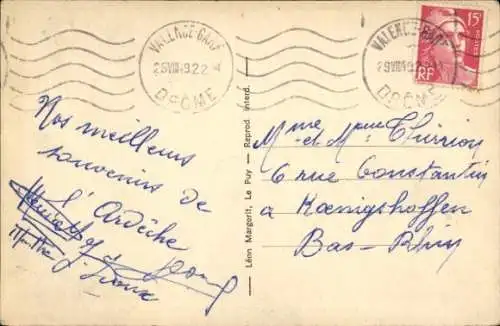 VALENCE-GARE
DROME
VALENCE-GARE
DROME
15F
RF
Nos meilleurs
souvenirs de
l'Ardèche
Léon Margerit, Le Puy — Reprod. interd.
Mme et Mme Thirion
6 rue Constantin
a Kœnigshoffen
Bas-Rhin